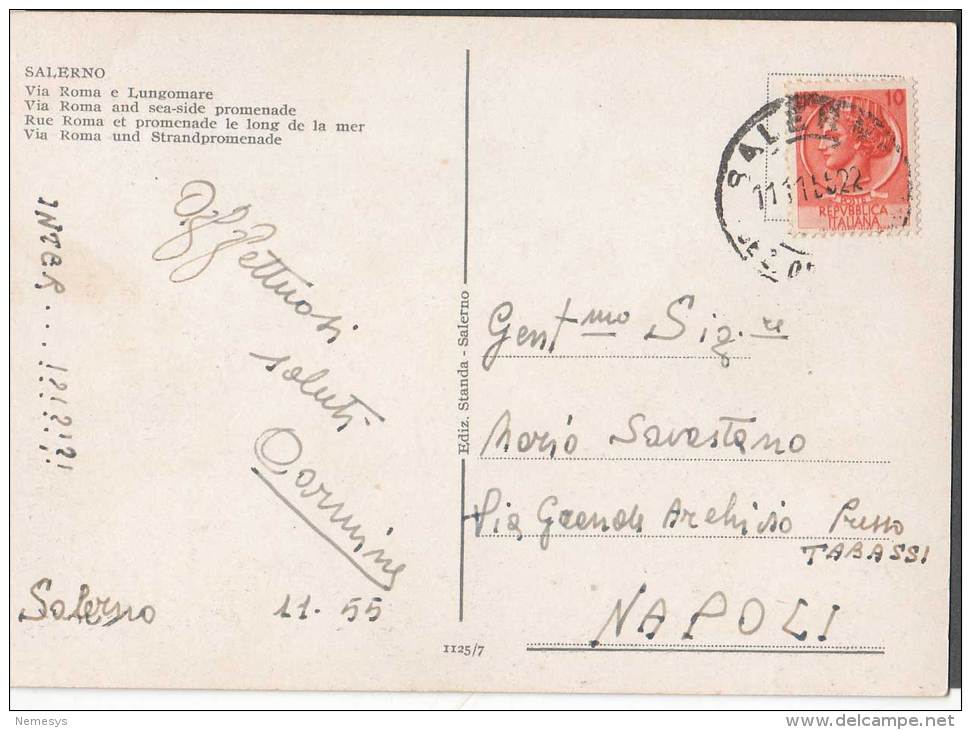 SALERNO
Via Roma e Lungomare
Via Roma and sea-side promenade
Rue Roma et promenade le long de la mer
Via Roma und Strandpromenade
Affettuosi
saluti
Carmine
Salerno 11.55
INTER....!
Ediz. Standa - Salerno
1125/7
10
POSTE
REPVBBLICA
ITALIANA
SALERNO
22
Gent mo Sig.re
Mario Savastano
Via Grande Archivio Presso
TABASSI
NAPOLI
Nemesys
delcampe.net